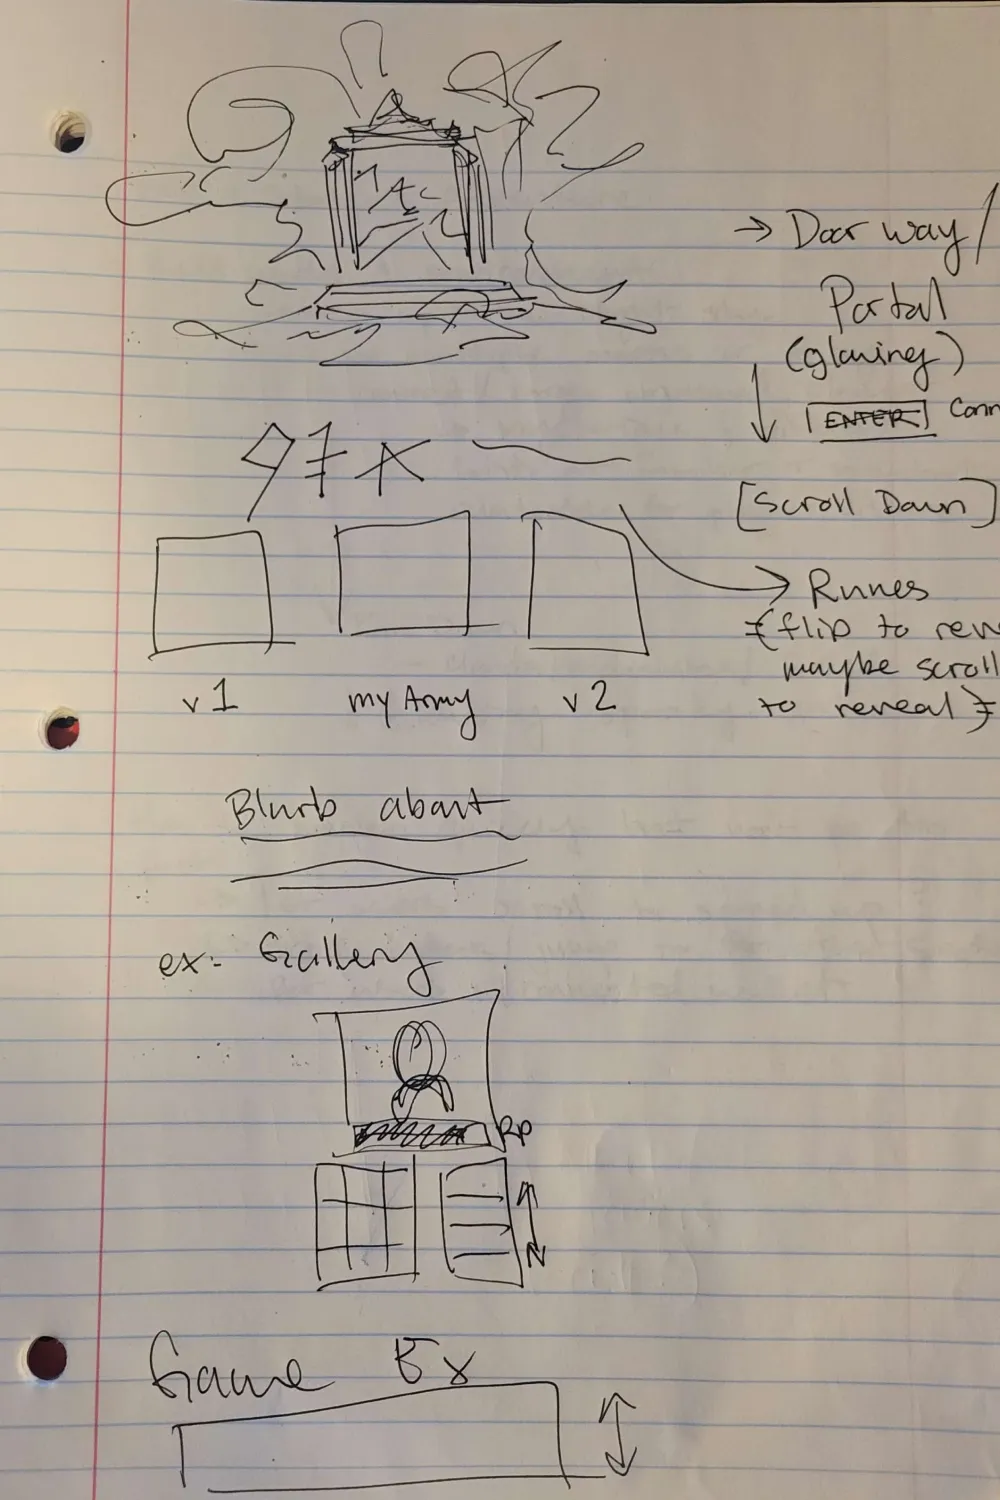 → Door way /
Portal
(glowing)
ENTER Conn
[Scroll Down]
→ Runes
(flip to rev
maybe scroll
to reveal)
v1 my Army v2
Blurb about
ex: Gallery
RP
Game Ex